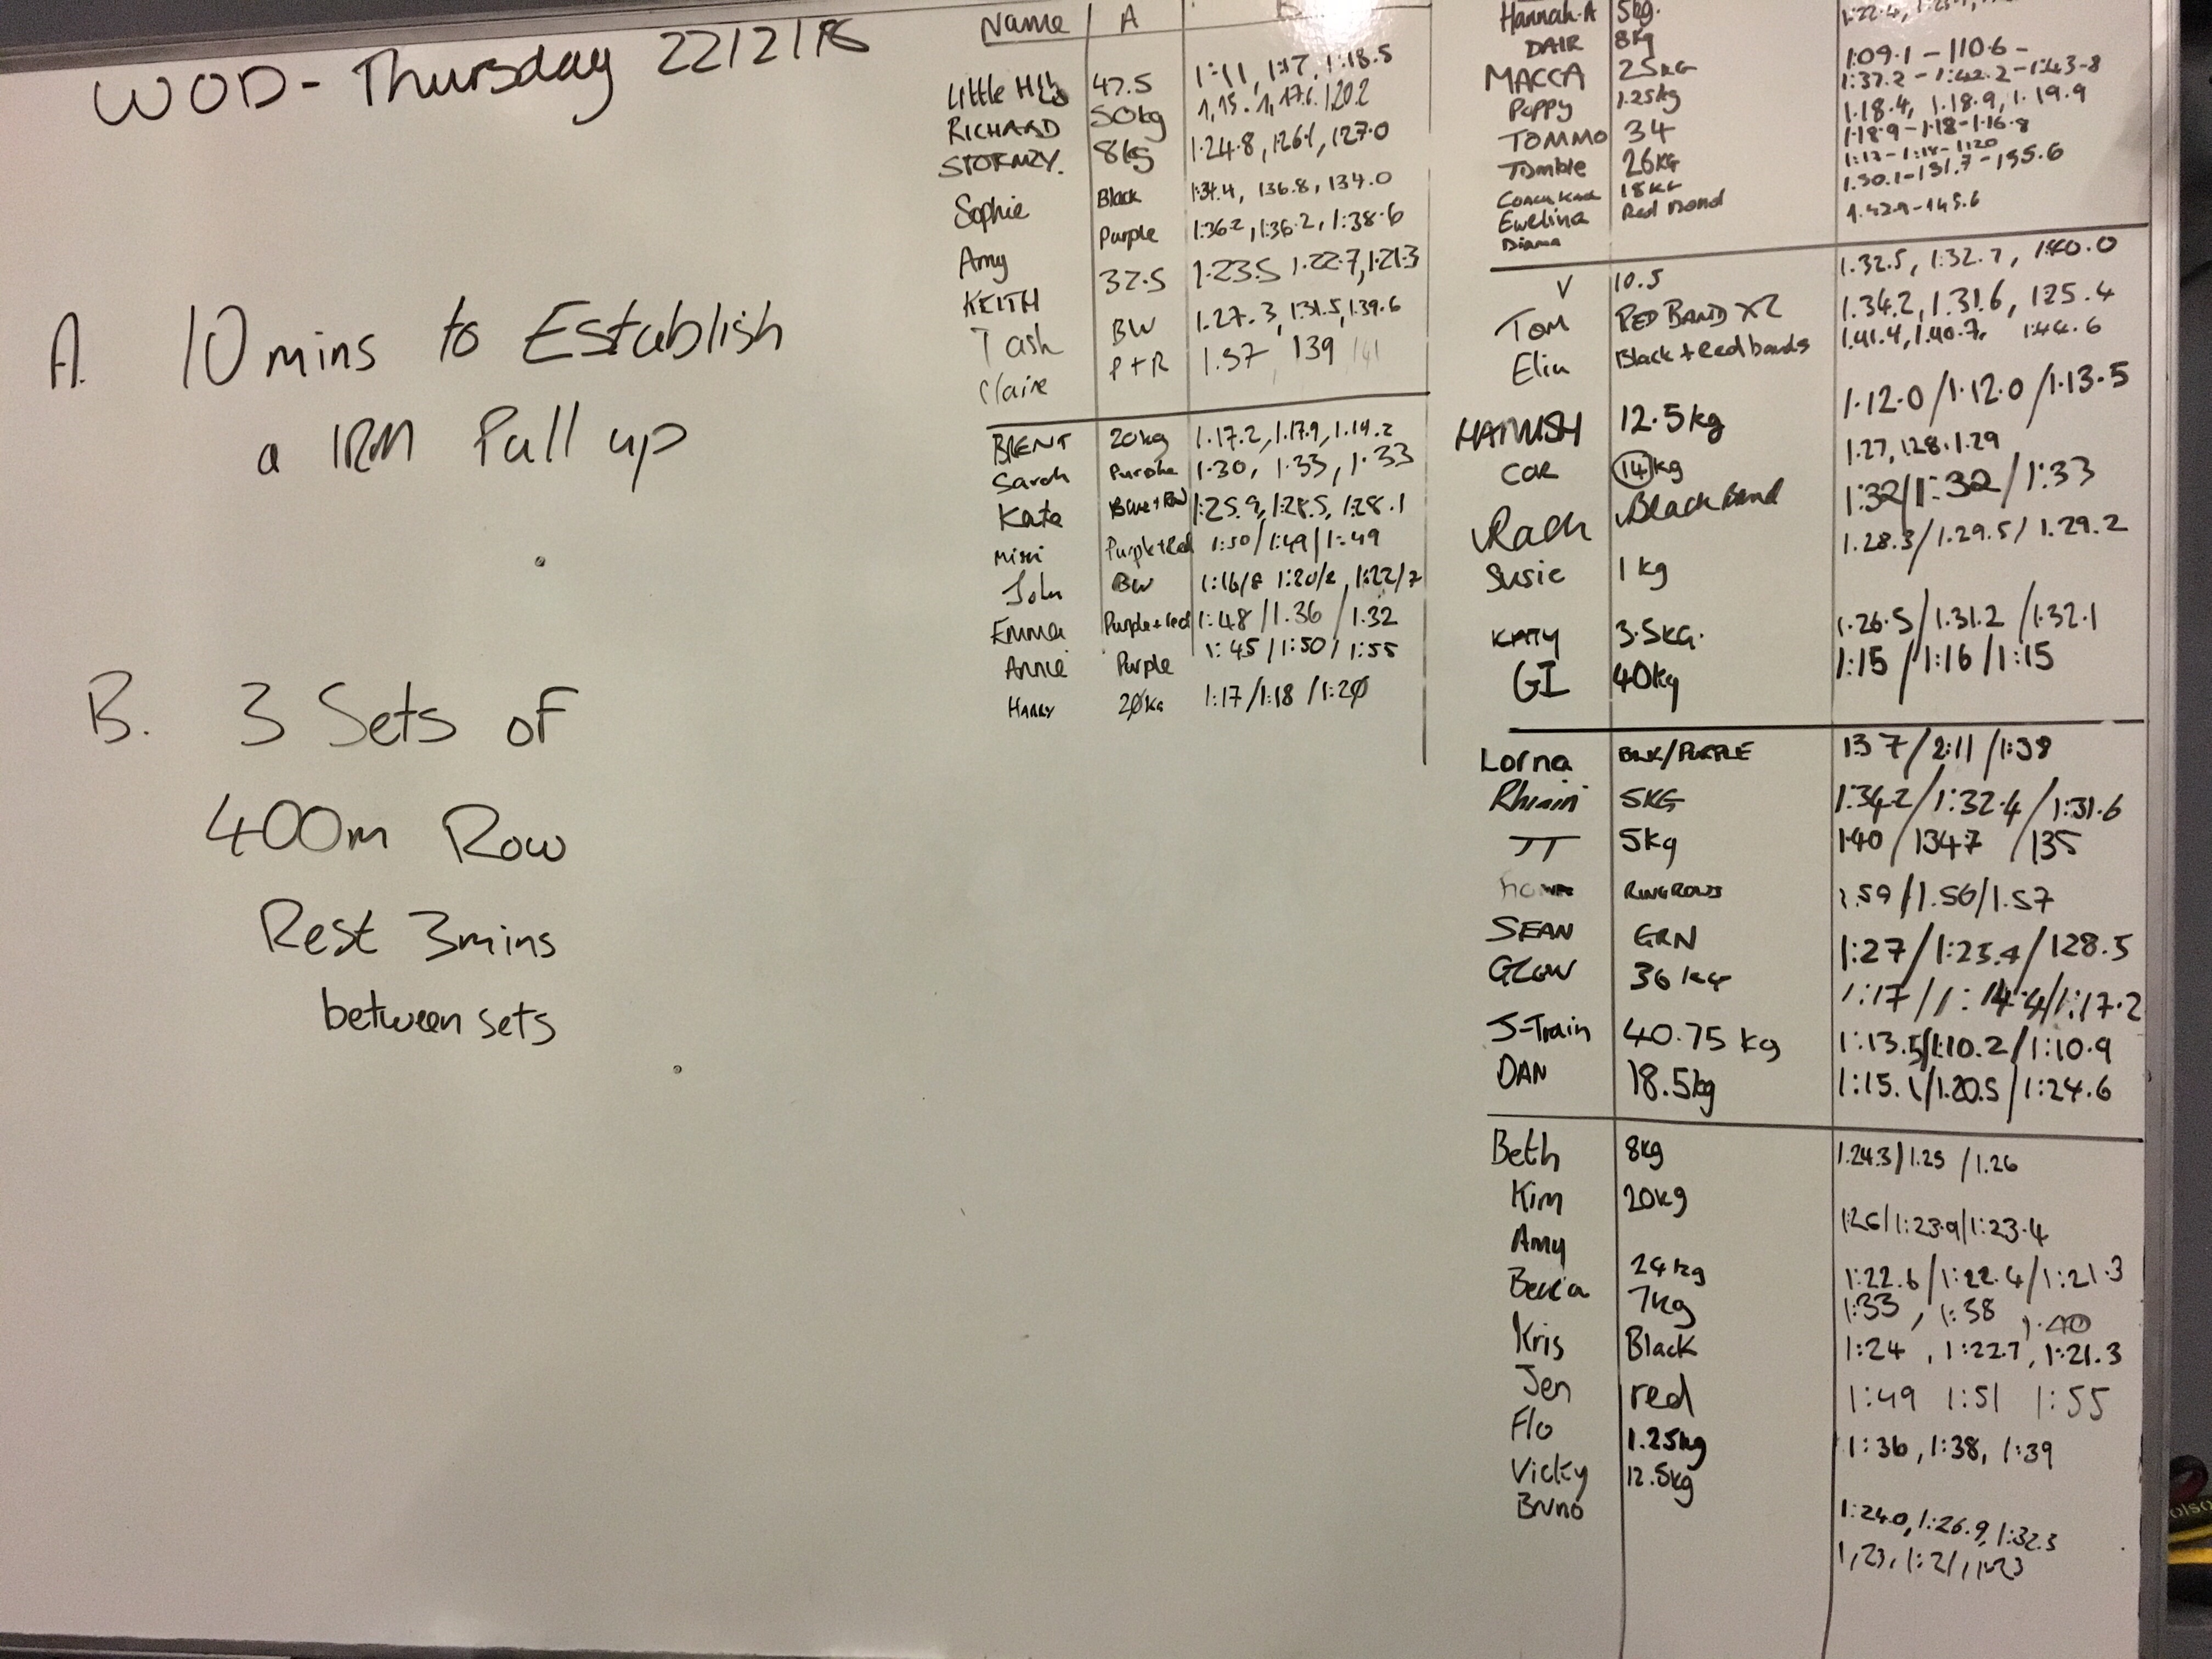 WOD - Thursday 22/2/18
A. 10 mins to Establish
a 1RM Pull up
B. 3 Sets of
400m Row
Rest 3mins
between sets
Name A
Little 47.5 1:11, 1:17, 1:18.5
RICHARD 50kg
STORMZY. 8kg 1:24.8, 126.1, 127.0
Sophie Black 1:34.4, 136.8, 134.0
Amy Purple 1:36.2, 1:36.2, 1:38.6
KEITH 32.5 1.23.5 1.22.7, 1.21.3
Tash BW 1.27.3, 1:31.5, 1:39.6
Claire P+R 1.37 139 141
BRENT 20kg 1.17.2, 1.17.9, 1.19.2
Sarah Purple 1:30, 1:33, 1:33
Kate 1:25.9, 1:28.5, 1:28.1
Mimi Purple+Red 1:50/1:49/1:49
John BW 1:16/8 1:20/2, 1:22/7
Emma Purple+red 1:48/1.36/1.32
Annie Purple 1:45/1:50/1:55
HARRY 20kg 1:17/1:18/1:20
Hannah.A 5kg.
DAIR 8kg 1:09.1 - 110.6 -
MACCA 25KG 1:37.2 - 1:42.2 - 1:43.8
Poppy 1.25kg 1.18.4, 1.18.9, 1.19.9
TOMMO 34 1:18.9 - 1:18 - 1.16.8
Tomble 26KG
18KG 1.30.1 - 131.7 - 135.6
Ewelina Red 1.42.9 - 145.6
Diama
V 10.5 1.32.5, 1:32.7, 1:40.0
Tom RED BAND X2 1.34.2, 1.31.6, 125.4
Elin Black + Red bands 1.41.4, 1.40.7, 1:44.6
HAMISH 12.5kg 1.12.0/1.12.0/1.13.5
COR 14kg 1.27, 128.1.29
Rach Black Band 1:32/1:32/1:33
Susie 1kg 1.28.3/1.29.5/1.29.2
KATY 3.5KG. 1.26.5/1.31.2/1:32.1
GI 40kg 1:15/1:16/1:15
Lorna BLK/PURPLE 137/2:11/1:38
Rhiain 5KG 1:34.2/1:32.4/1:31.6
JT 5kg 1:40/1347/135
RING ROWS 1.59/1.56/1.57
SEAN GRN 1:27/1:25.4/128.5
GLEW 36KG 1:17/1:14.4/1:17.2
J-Train 40.75kg 1:13.5/1:10.2/1:10.9
DAN 18.5kg 1:15.1/1.20.5/1:24.6
Beth 8kg 1.24.3/1.25/1.26
Kim 20kg 126/1:23.9/1:23.4
Amy 24kg 1:22.6/1:22.4/1:21.3
Becca 7kg 1:33, 1:38, 1:40
Kris Black 1:24, 1:22.7, 1:21.3
Jen red 1:49 1:51 1:55
Flo 1.25kg 1:36, 1:38, 1:39
Vicky 12.5kg 1:24.0, 1:26.9, 1:32.3
Bruno 1,23, 1:21, 1:23